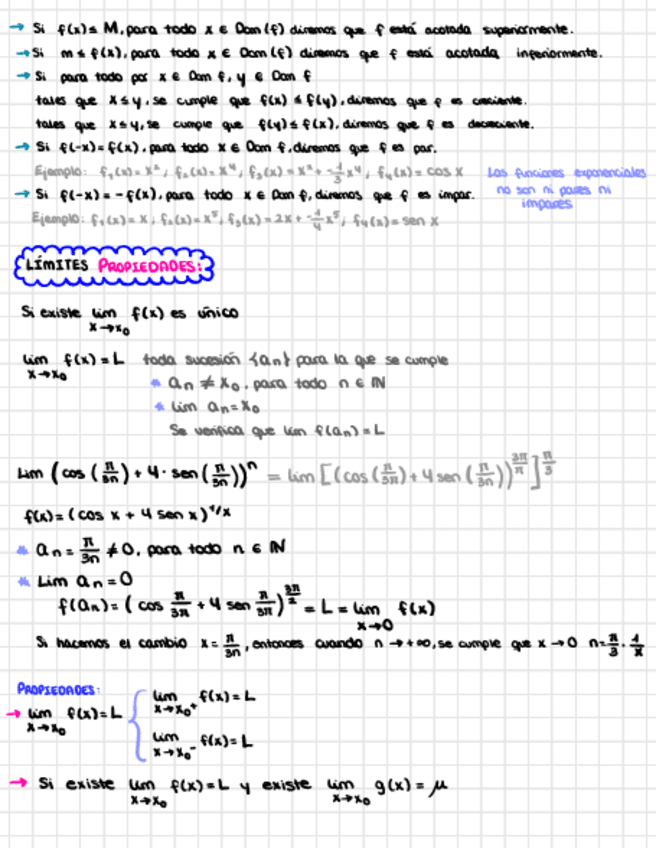 → Si f(x) ≤ M, para todo x ∈ Dom(f) diremos que f está acotada superiormente.
→ Si m ≤ f(x), para todo x ∈ Dom(f) diremos que f está acotada inferiormente.
→ Si para todo por x ∈ Dom f, y ∈ Dom f
tales que x ≤ y, se cumple que f(x) ≤ f(y), diremos que f es creciente.
tales que x ≤ y, se cumple que f(y) ≤ f(x), diremos que f es decreciente.
→ Si f(-x) = f(x), para todo x ∈ Dom f, diremos que f es par.
Ejemplo: f₁(x) = x², f₂(x) = x⁴, f₃(x) = x² + -1/3 x⁴, f₄(x) = cos x
Las funciones exponenciales
no son ni pares ni
impares
→ Si f(-x) = -f(x), para todo x ∈ Dom f, diremos que f es impar.
Ejemplo: f₁(x) = x, f₂(x) = x⁵, f₃(x) = 2x + -1/4 x⁵, f₄(x) = sen x
LÍMITES PROPIEDADES:
Si existe lim x→x₀ f(x) es único
lim x→x₀ f(x) = L toda sucesión {aₙ} para la que se cumple
* aₙ ≠ x₀, para todo n ∈ ℕ
* Lim aₙ = x₀
Se verifica que lim f(aₙ) = L
Lim (cos (π/3n) + 4 · sen (π/3n))ⁿ = lim [(cos (π/3n) + 4 sen (π/3n))^(3n/π)]^(π/3)
f(x) = (cos x + 4 sen x)^(1/x)
* aₙ = π/3n ≠ 0, para todo n ∈ ℕ
* Lim aₙ = 0
f(aₙ) = (cos π/3n + 4 sen π/3n) = L = lim x→0 f(x)
Si hacemos el cambio x = π/3n, entonces cuando n → +∞, se cumple que x → 0 n = π/3 · 1/x
PROPIEDADES:
→ lim x→x₀ f(x) = L { lim x→x₀⁺ f(x) = L
lim x→x₀⁻ f(x) = L
→ Si existe lim x→x₀ f(x) = L y existe lim x→x₀ g(x) = μ